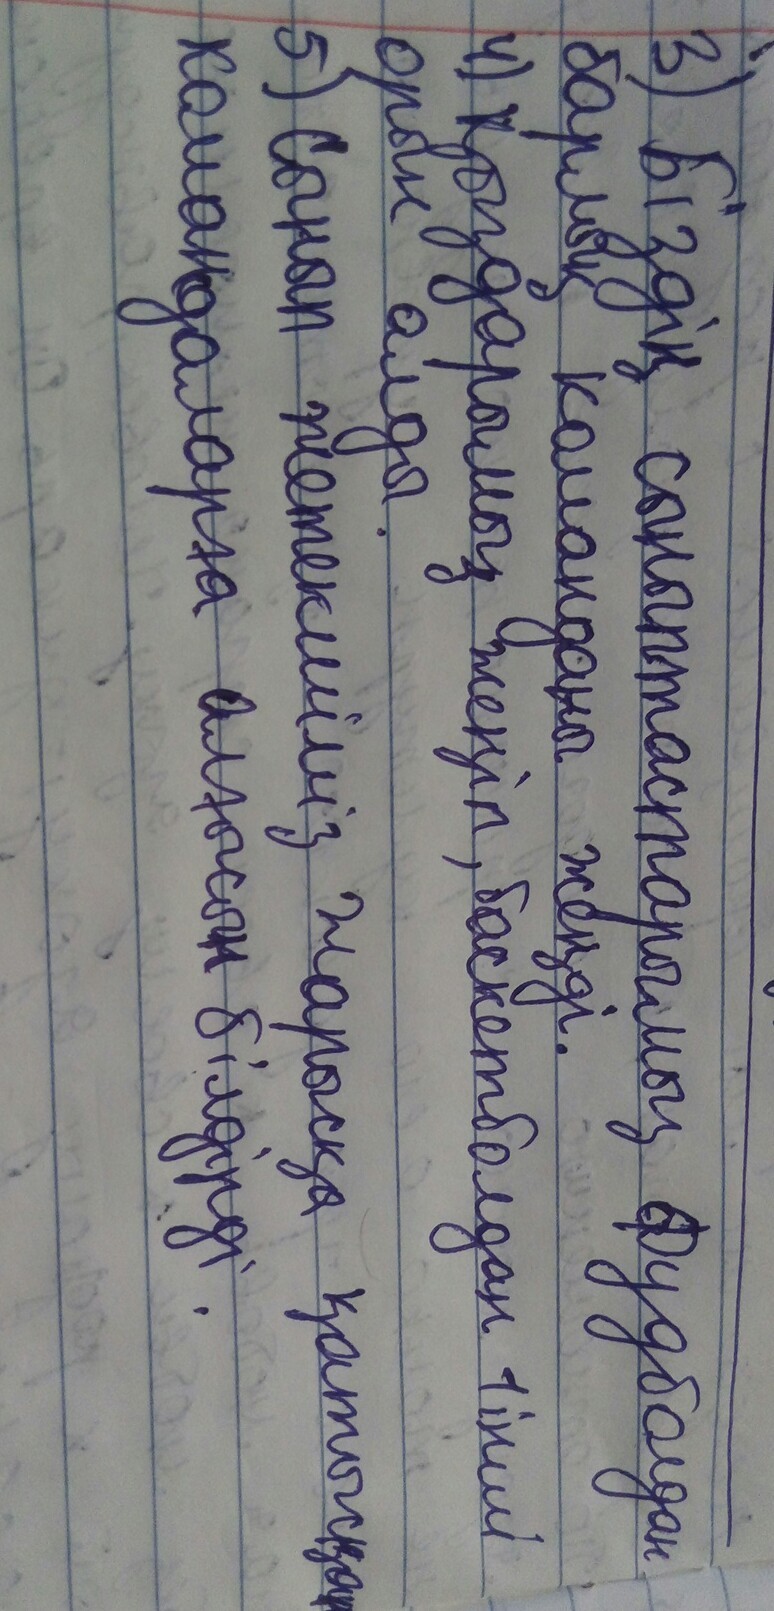 3) Біздің сыныптастарымыз Фудболдан
барлық команданы жеңді.
4) Қыздарымыз жеңіп, баскетболдан 1інші
орын алды.
5) Сынып жетекшіміз жарысқа қатысқан
командаларға алғысын білдірді.